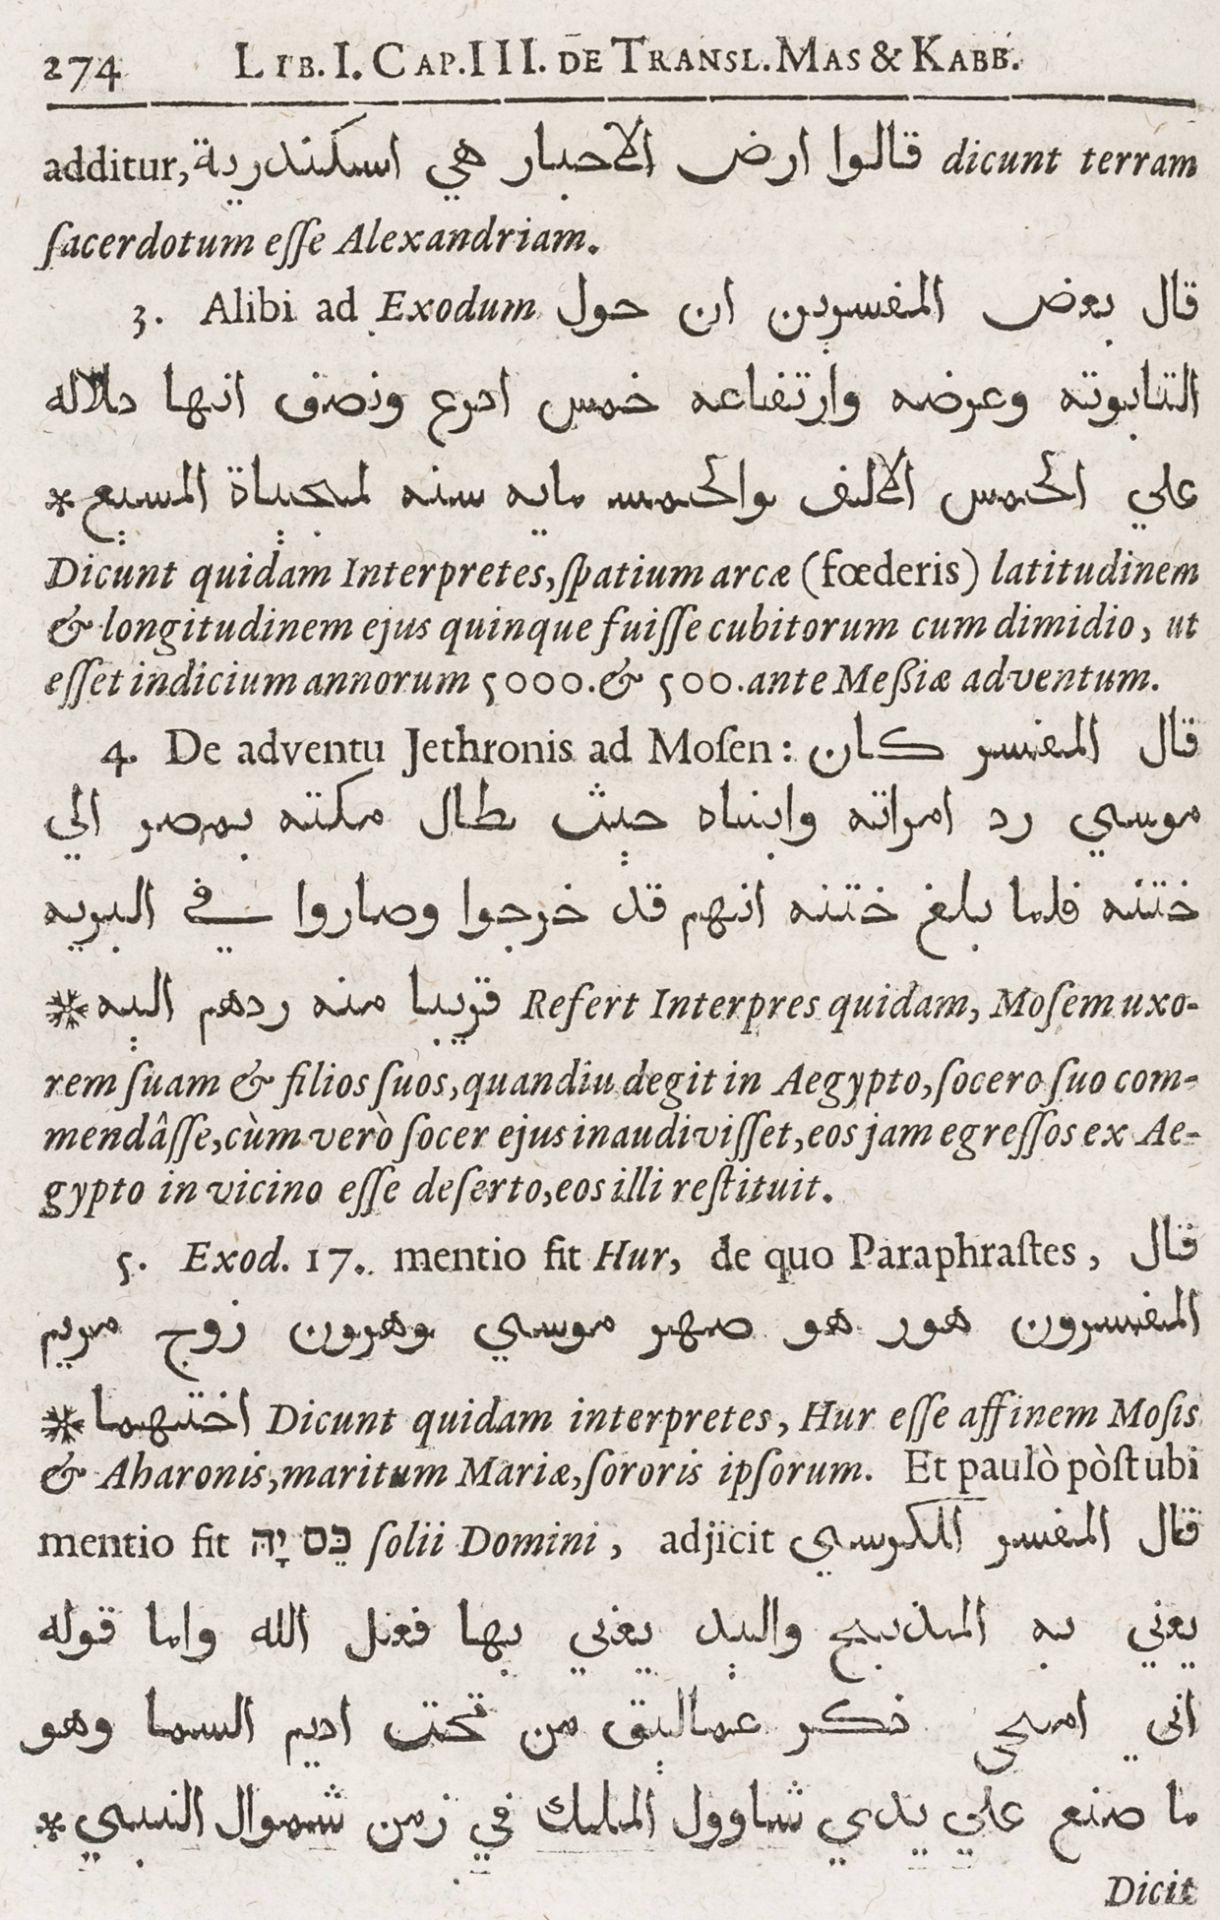 274 LIB. I. CAP. III. DE TRANSL. MAS & KABB.
additur, قالوا ارض الاحبار هي اسكندرية dicunt terram
ſacerdotum eſſe Alexandriam.
3. Alibi ad Exodum قال بعض المفسرين ان حول
التابوته وعرضه وارتفاعه خمس ادرع ونصف انها دلاله
علي الخمس الالف والخمس مايه سنه لمجياة المسيع *
Dicunt quidam Interpretes, ſpatium arcæ (fœderis) latitudinem
& longitudinem ejus quinque fuiſſe cubitorum cum dimidio, ut
eſſet indicium annorum 5000. & 500. ante Meſſiæ adventum.
4. De adventu Jethronis ad Moſen: قال المفسر كان
موسي رد امراته وابناه حيث طال مكته بمصر الي
ختنه فلما بلغ ختنه انهم قد خرجوا وصاروا في البريه
قريبا منه ردهم اليه * Refert Interpres quidam, Moſem uxo-
rem ſuam & filios ſuos, quandiu degit in Aegypto, ſocero ſuo com-
mendâſſe, cùm verò ſocer ejus inaudiviſſet, eos jam egreſſos ex Ae-
gypto in vicino eſſe deſerto, eos illi reſtituit.
5. Exod. 17. mentio fit Hur, de quo Paraphraſtes, قال
المفسرون هور هو صهر موسي وهرون زوج مريم
اختهما * Dicunt quidam interpretes, Hur eſſe affinem Moſis
& Aharonis, maritum Mariæ, ſororis ipſorum. Et paulò pòſt ubi
mentio fit כֵּס יָהּ ſolii Domini, adjicit قال المفسر الكرسي
يعني به المذبح واليد يعني بها فعل الله واما قوله
اني امحي ذكر عماليق من تحت اديم السما وهو
ما صنع علي يدي شاوول الملك في زمن شموال النبي *
Dicit